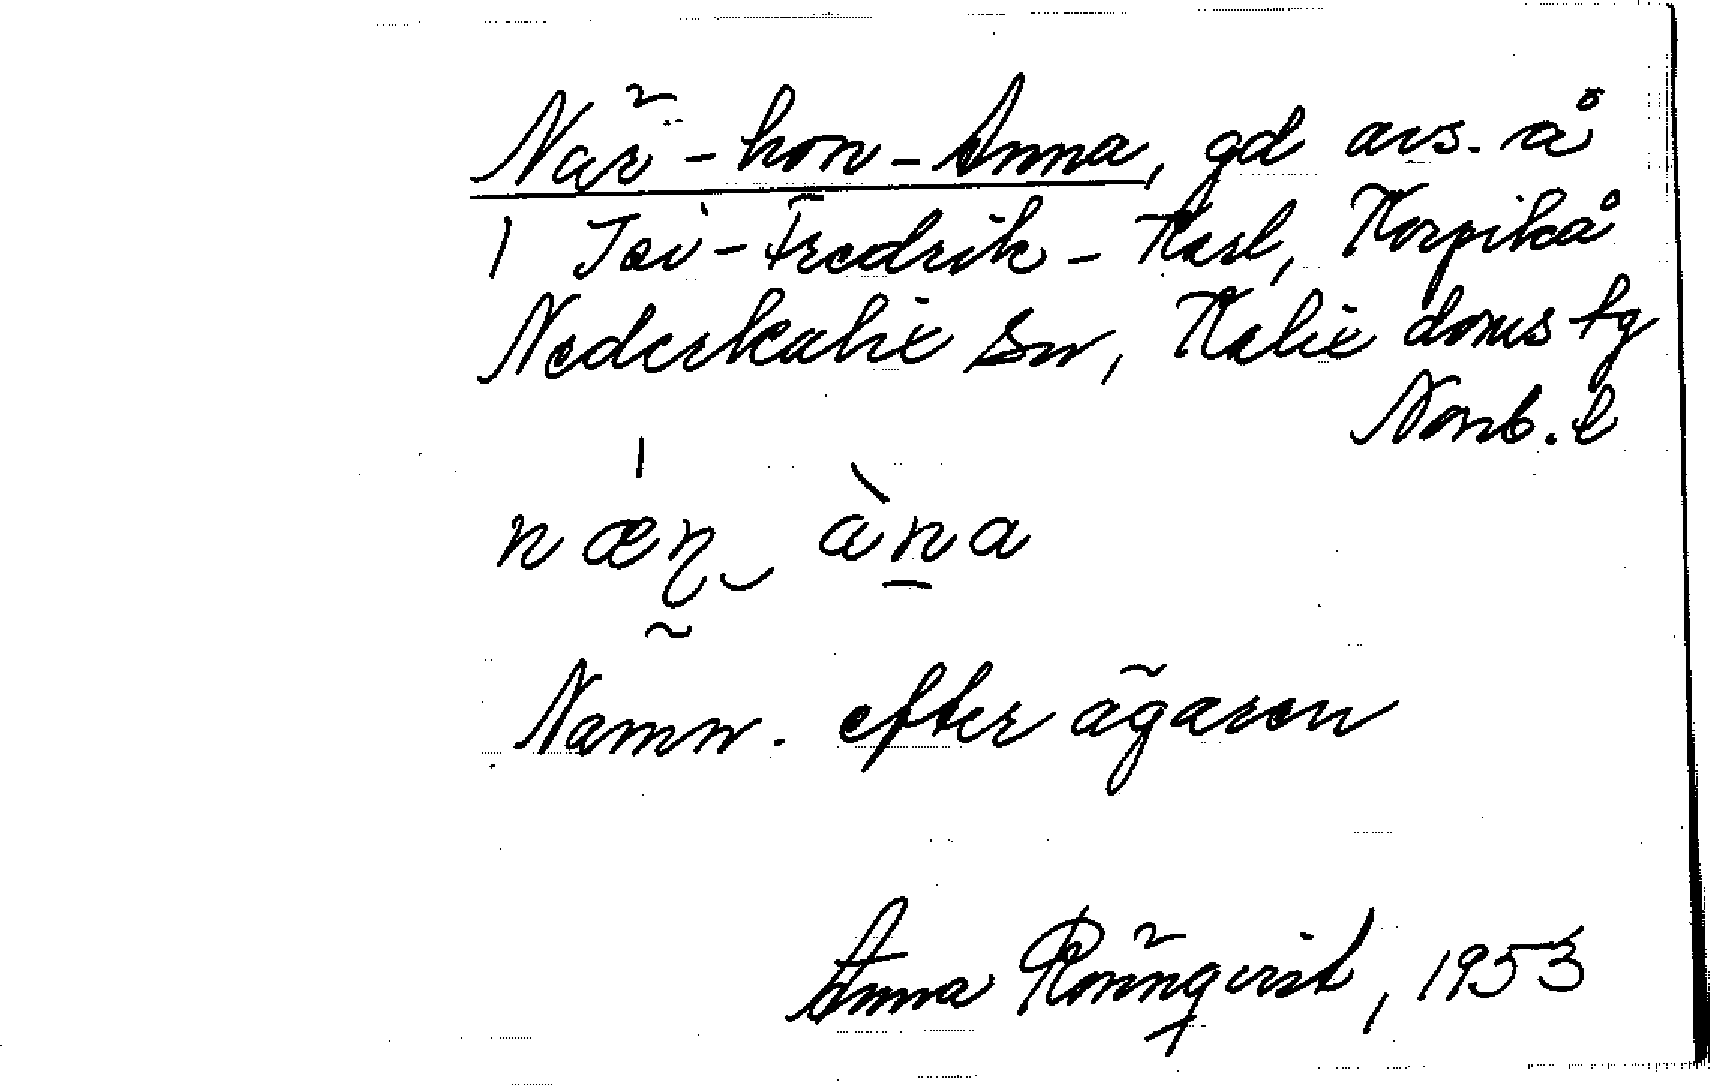 När-hon-Anna, gd avs. å
1 Joi-Fredrik-Karl, Korpikå
Nederkalix sn, Kalix doms tg
Norrb. l
næn àna
Namn. efter ägaren
Anna Rönnqvist, 1953